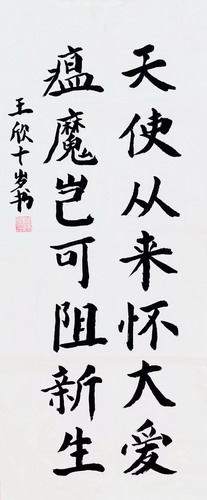 天使从来怀大爱
瘟魔岂可阻新生
王欣十岁书